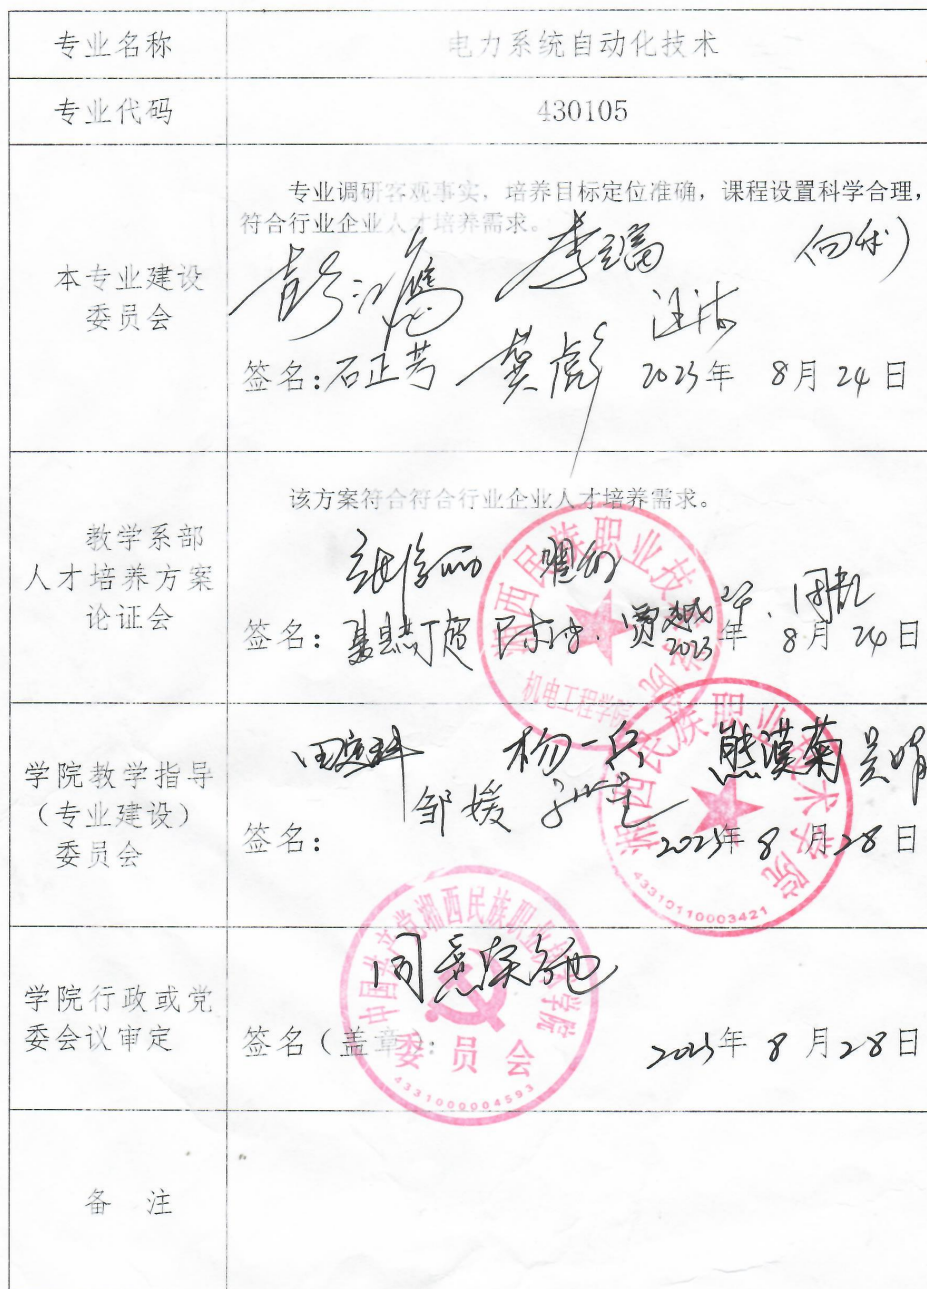 专业名称
电力系统自动化技术
专业代码
430105
本专业建设
委员会
专业调研客观事实，培养目标定位准确，课程设置科学合理，
符合行业企业人才培养需求。
彭江鹰 李瑞
汪洁
签名：石正芳 龚彪 2023年 8月 24日
教学系部
人才培养方案
论证会
该方案符合符合行业企业人才培养需求。
签名： 贾越 2023年 8月 24日
湘西民族职业技术学院
机电工程学院
学院教学指导
（专业建设）
委员会
杨一兵 熊漠菊 吴明
邹媛
签名： 2023年 8月28日
湘西民族职业技术学院
43310110003421
学院行政或党
委会议审定
同意实施
签名（盖章）： 2023年 8月28日
中国共产党湘西民族职业技术学院
委员会
43310000004593
备 注